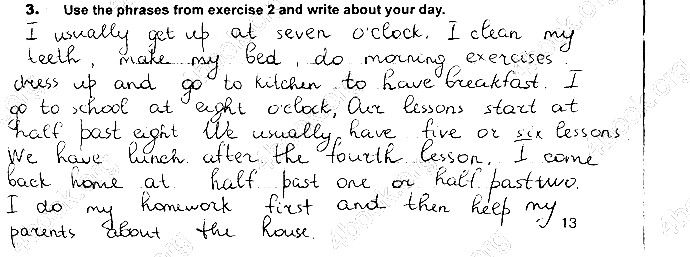 3. Use the phrases from exercise 2 and write about your day.
I usually get up at seven o'clock. I clean my
teeth, make my bed, do morning exercises.
dress up and go to kitchen to have breakfast. I
go to school at eight o'clock, Our lessons start at
half past eight We usually have five or six lessons.
We have lunch after the fourth lesson. I come
back home at half past one or half past two.
I do my homework first and then help my
parents about the house.
13